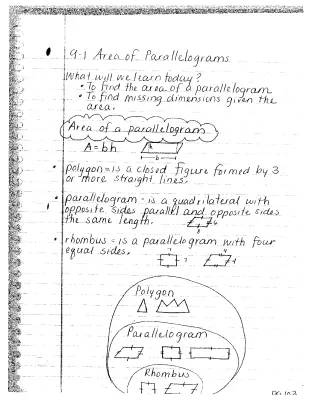 9-1 Area of Parallelograms
What will we learn today?
• To find the area of a parallelogram
• To find missing dimensions given the
area.
Area of a parallelogram
A = bh
h
b
• polygon - is a closed figure formed by 3
or more straight lines.
• parallelogram - is a quadrilateral with
opposite sides parallel and opposite sides
the same length.
• rhombus - is a parallelogram with four
equal sides.
Polygon
Parallelogram
Rhombus